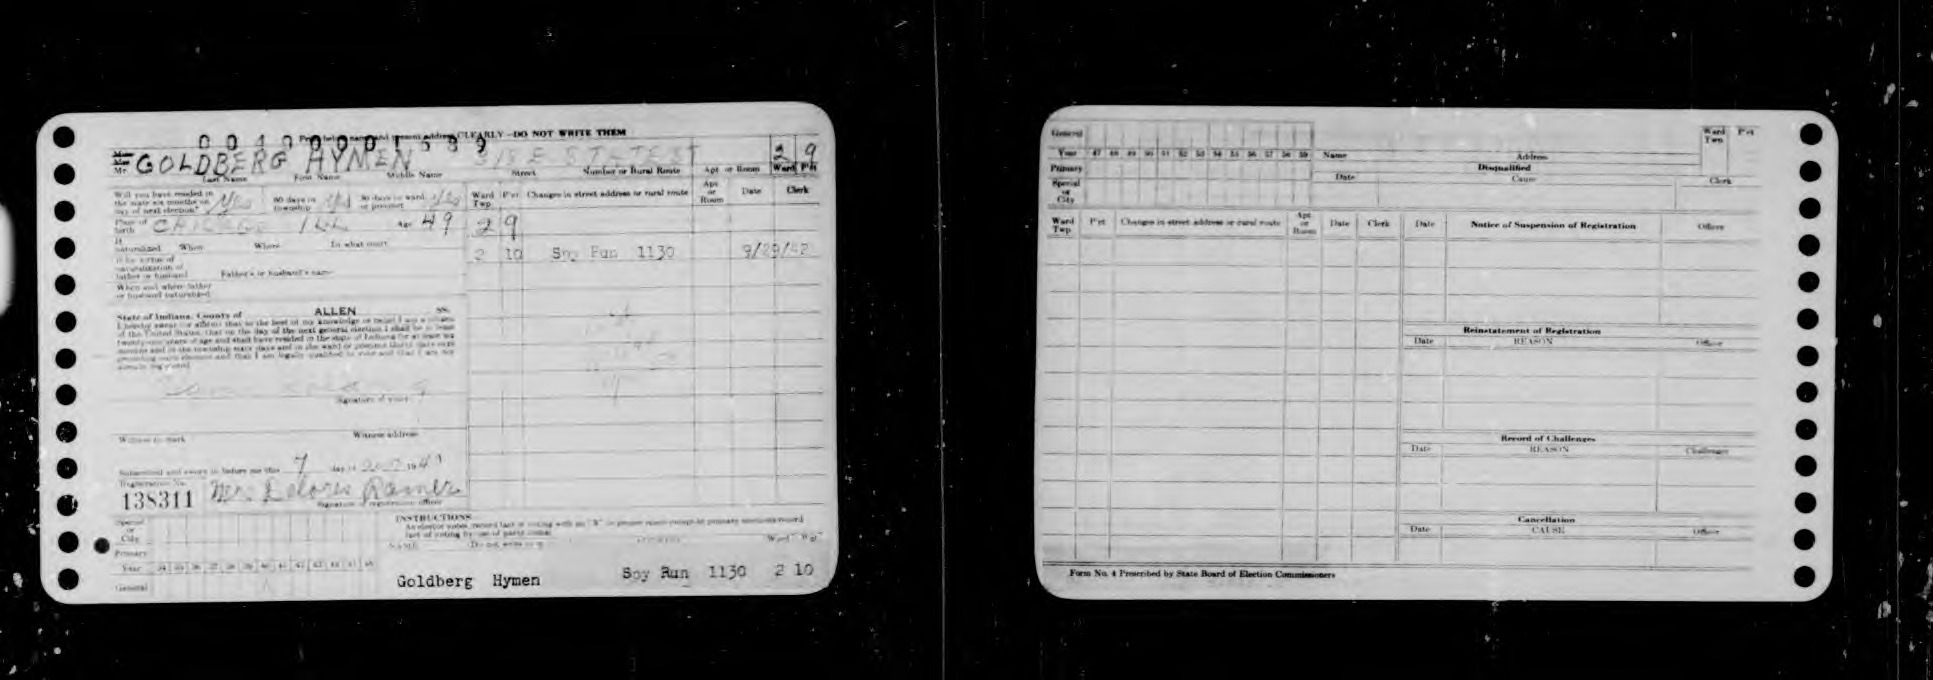 Print below name and present address CLEARLY - DO NOT WRITE THEM
GOLDBERG HYMEN E STATE ST 2 9
Mr. Last Name First Name Middle Name Street Number or Rural Route Apt or Room Ward Pct
Will you have resided in the state six months on day of next election? Yes 60 days in township Yes 30 days in ward or precinct Yes
Ward Twp Pct Changes in street address or rural route Apt or Room Date Clerk
Place of birth CHICAGO ILL Age 49
2 9
If naturalized When Where In what court
2 10 Spy Run 1130 9/29/42
If by virtue of naturalization of father or husband Father's or husband's name
When and where father or husband naturalized
State of Indiana, County of ALLEN SS.
I hereby swear (or affirm) that to the best of my knowledge or belief I am a citizen
of the United States, that on the day of the next general election I shall be at least
twenty-one years of age and shall have resided in the state of Indiana for at least six
months and in the township sixty days and in the ward or precinct thirty days next
preceding such election and that I am legally qualified to vote and that I am not
already registered
Signature of voter
Witness to mark Witness address
Subscribed and sworn to before me this 7 day of 19
Registration No.
138311
Signature of registration officer
INSTRUCTIONS
Special or City
Primary
NAME
Year 34 35 36 37 38 39 40 41 42 43 44 45 46
General
Goldberg Hymen Spy Run 1130 2 10
General Ward Twp Pct
Year 47 48 49 50 51 52 53 54 55 56 57 58 59 Name Address
Primary Disqualified
Special or City Date Cause Clerk
Ward Twp Pct Changes in street address or rural route Apt or Room Date Clerk Date Notice of Suspension of Registration Officer
Reinstatement of Registration
Date REASON Officer
Record of Challenges
Date REASON Challenger
Cancellation
Date CAUSE Officer
Form No. 4 Prescribed by State Board of Election Commissioners